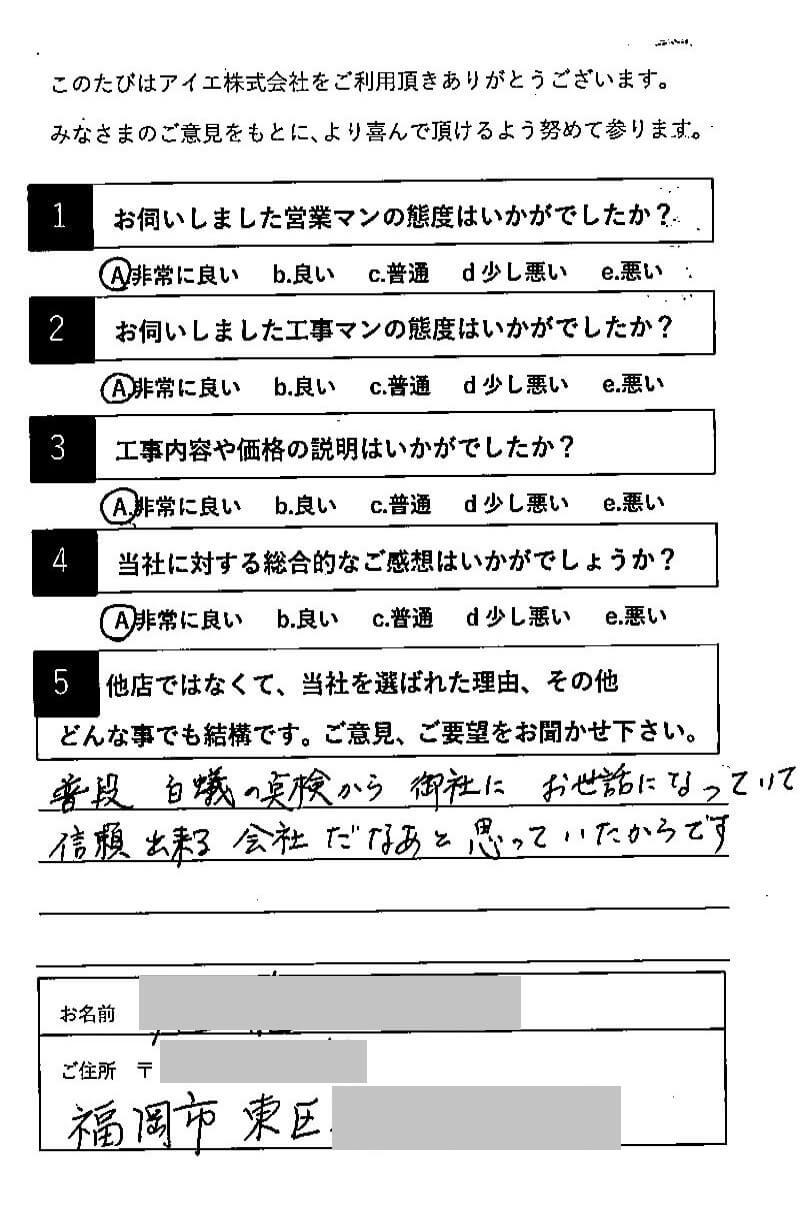 このたびはアイエ株式会社をご利用頂きありがとうございます。
みなさまのご意見をもとに、より喜んで頂けるよう努めて参ります。
1 お伺いしました営業マンの態度はいかがでしたか？
A.非常に良い b.良い c.普通 d 少し悪い e.悪い
2 お伺いしました工事マンの態度はいかがでしたか？
A.非常に良い b.良い c.普通 d 少し悪い e.悪い
3 工事内容や価格の説明はいかがでしたか？
A.非常に良い b.良い c.普通 d 少し悪い e.悪い
4 当社に対する総合的なご感想はいかがでしょうか？
A.非常に良い b.良い c.普通 d 少し悪い e.悪い
5 他店ではなくて、当社を選ばれた理由、その他
どんな事でも結構です。ご意見、ご要望をお聞かせ下さい。
普段 白蟻の点検から 御社に お世話になっていて
信頼出来る会社だなあと思っていたからです
お名前
ご住所 〒
福岡市東区